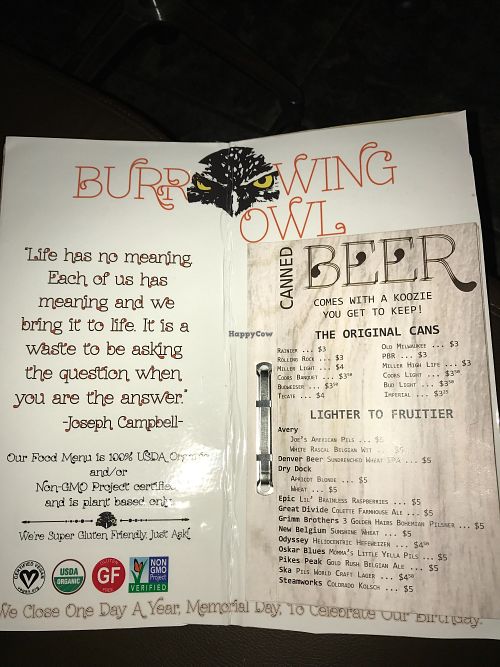 BURROWING
OWL
"Life has no meaning.
Each of us has
meaning and we
bring it to life. It is a
waste to be asking
the question when
you are the answer."
-Joseph Campbell-
Our Food Menu is 100% USDA Organic
and/or
Non-GMO Project certified
and is plant based only.
We're Super Gluten Friendly, Just Ask!
CERTIFIED VEGAN
USDA
ORGANIC
GF
NON
GMO
Project
VERIFIED
We Close One Day A Year, Memorial Day, To Celebrate Our Birthday.
CANNED
BEER
COMES WITH A KOOZIE
YOU GET TO KEEP!
THE ORIGINAL CANS
Rainier ... $3
Rolling Rock ... $3
Miller Light ... $4
Coors Banquet ... $3⁵⁰
Budweiser ... $3⁵⁰
Tecate ... $4
Old Milwaukee ... $3
PBR ... $3
Miller High Life ... $3
Coors Light ... $3⁵⁰
Bud Light ... $3⁵⁰
Imperial ... $3²⁵
LIGHTER TO FRUITIER
Avery
Joe's American Pils ... $5
White Rascal Belgian Wit ... $5
Denver Beer Sundrenched Wheat IPA ... $5
Dry Dock
Apricot Blonde ... $5
Wheat ... $5
Epic Lil' Brainless Raspberries ... $5
Great Divide Colette Farmhouse Ale ... $5
Grimm Brothers 3 Golden Hairs Bohemian Pilsner ... $5
New Belgium Sunshine Wheat ... $5
Odyssey Heliocentric Hefeweizen ... $4⁵⁰
Oskar Blues Momma's Little Yella Pils ... $5
Pikes Peak Gold Rush Belgian Ale ... $5
Ska Pils World Craft Lager ... $4⁵⁰
Steamworks Colorado Kolsch ... $5
HappyCow